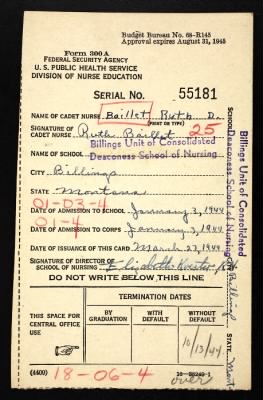 Budget Bureau No. 68-R145
Approval expires August 31, 1945
Form 300A
FEDERAL SECURITY AGENCY
U. S. PUBLIC HEALTH SERVICE
DIVISION OF NURSE EDUCATION
SERIAL NO. 55181
NAME OF CADET NURSE Baillet Ruth D.
(PRINT OR TYPE)
SIGNATURE OF CADET NURSE Ruth Baillet 25
Billings Unit of Consolidated
NAME OF SCHOOL Deaconess School of Nursing
CITY Billings
STATE Montana
01-03-4
DATE OF ADMISSION TO SCHOOL January 3, 1944
01-4
DATE OF ADMISSION TO CORPS January 3, 1944
DATE OF ISSUANCE OF THIS CARD March 27, 1944
SIGNATURE OF DIRECTOR OF SCHOOL OF NURSING Elizabeth
DO NOT WRITE BELOW THIS LINE
THIS SPACE FOR CENTRAL OFFICE USE
TERMINATION DATES
BY GRADUATION
WITH DEFAULT
WITHOUT DEFAULT
10/13/44
(4400) 18-06-4
over
SCHOOL
Billings Unit of Consolidated
Deaconess School of Nursing
Billings
STATE